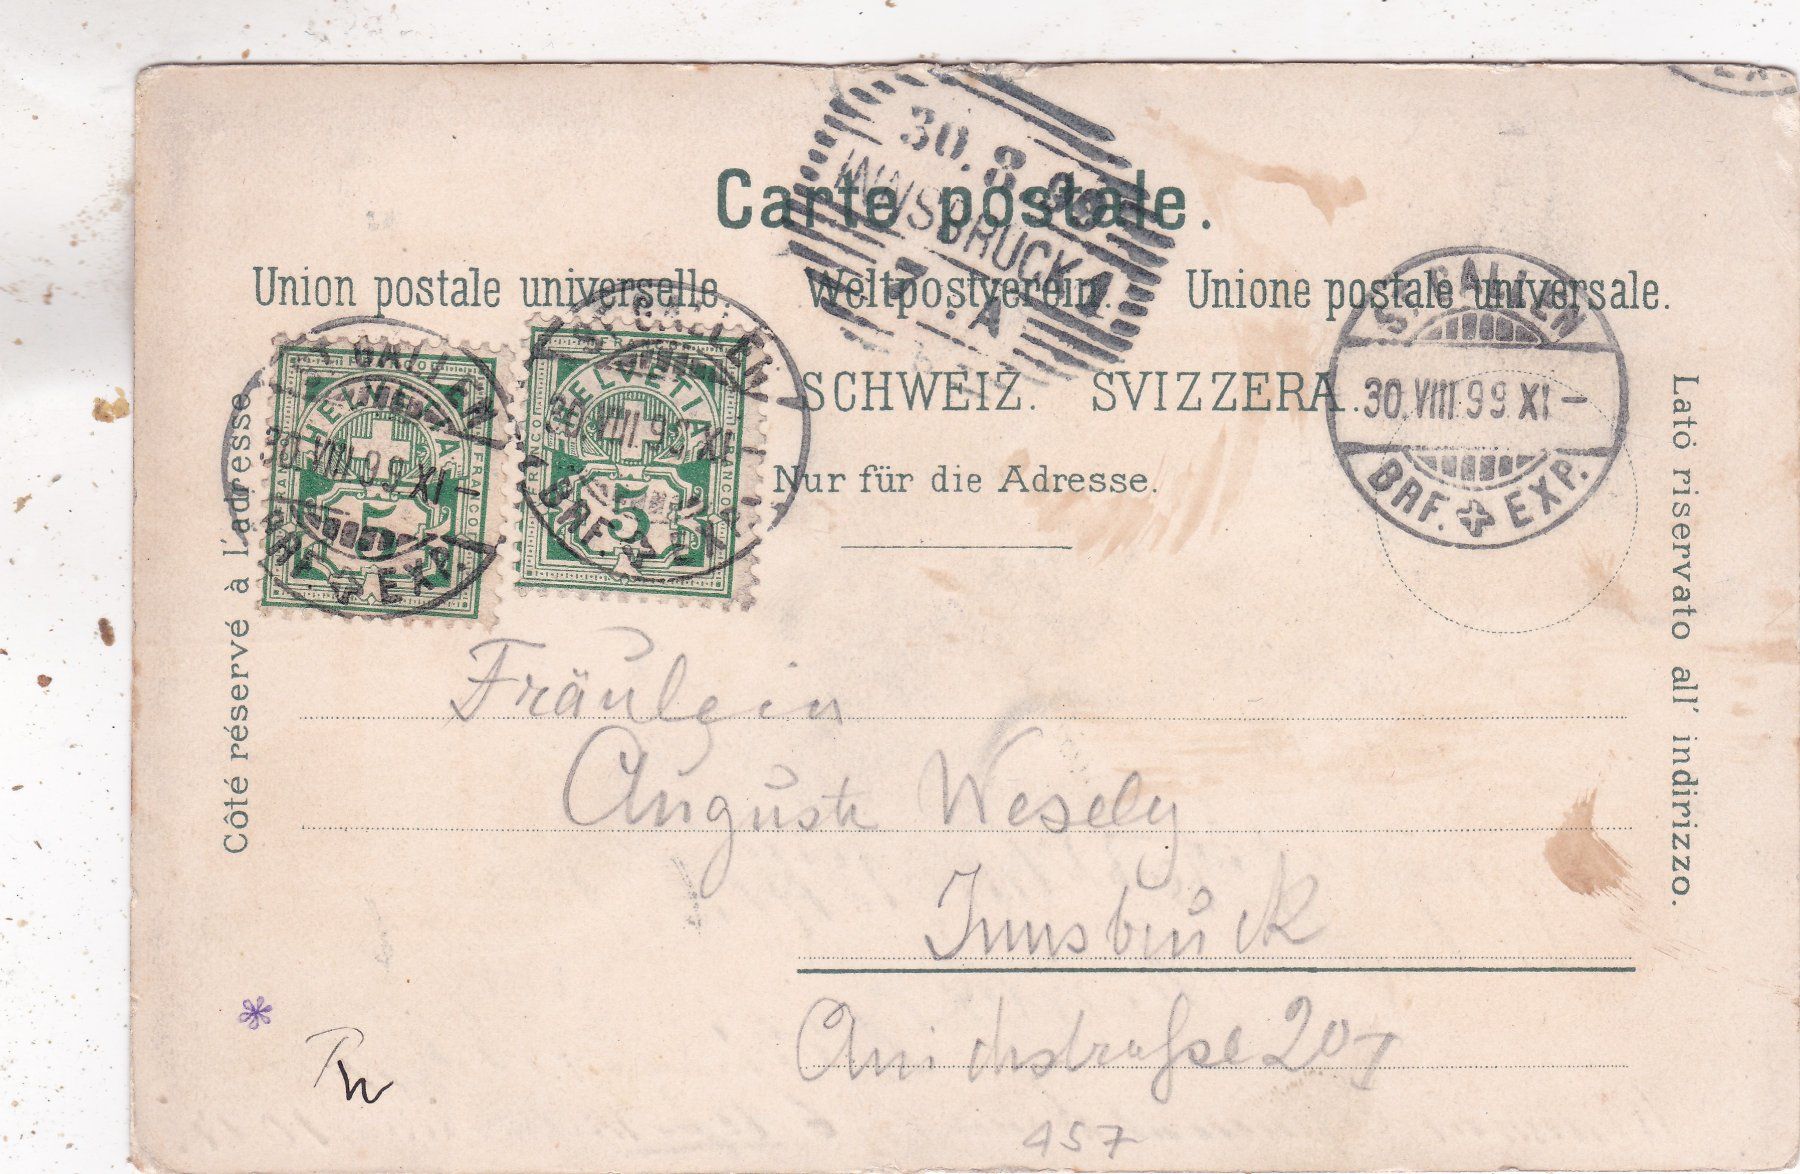 Carte postale.
30.8.99
INNSBRUCK 1
7.A
Union postale universelle. Weltpostverein. Unione postale universale.
SCHWEIZ. SVIZZERA.
Nur für die Adresse.
Côté réservé à l'adresse
Lato riservato all' indirizzo.
FRANCO HELVETIA FRANCO
5
ST. GALLEN
30.VIII.99.XI-
BRF. EXP.
FRANCO HELVETIA FRANCO
5
ST. GALLEN
30.VIII.99.XI-
BRF. EXP.
ST. GALLEN
30.VIII.99.XI-
BRF. EXP.
Fräulein
Auguste Wesely
Innsbruck
Anichstraße 20 I
457